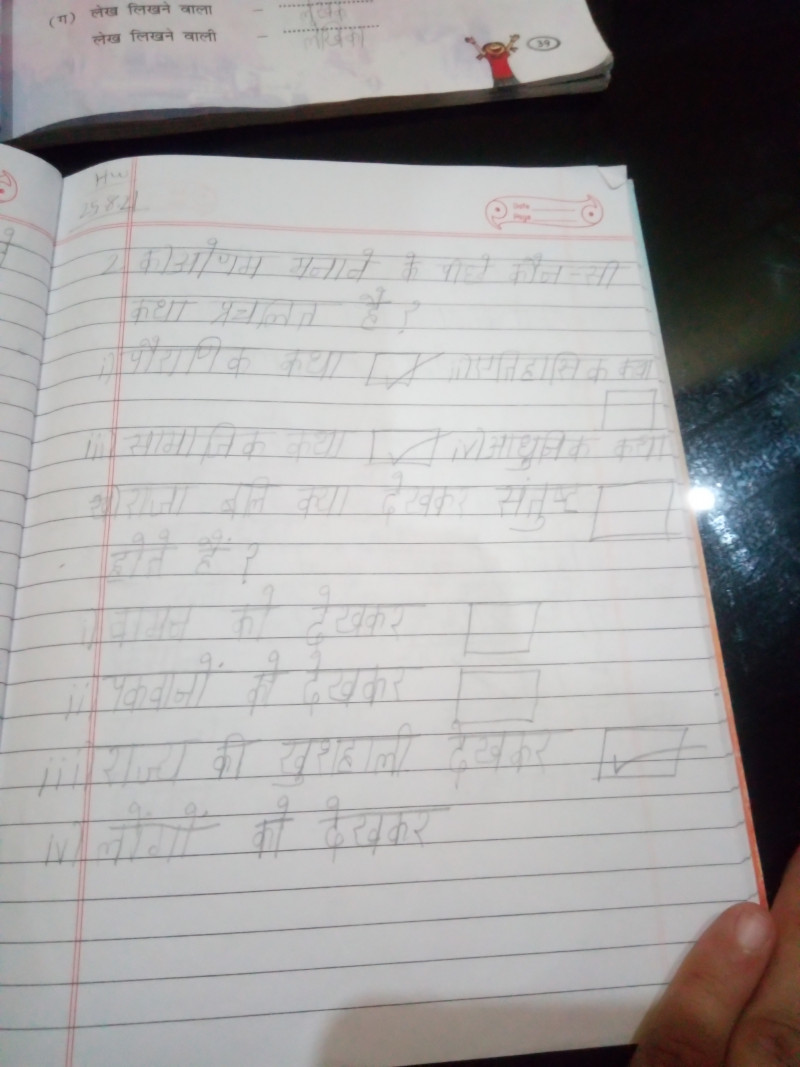 (ग) लेख लिखने वाला - लेखक
लेख लिखने वाली - लेखिका
39
HW
25.8.21
Date
Page
2. क) ओणम मनाने के पीछे कौन-सी
कथा प्रचलित है?
i) पौराणिक कथा ii) एतिहासिक कथा
iii) सामाजिक कथा iv) आधुनिक कथा
ख) राजा बलि क्या देखकर संतुष्ट
होते हैं?
i) वामन को देखकर
ii) पकवानों को देखकर
iii) राज्य की खुशहाली देखकर
iv) लोंगों को देखकर